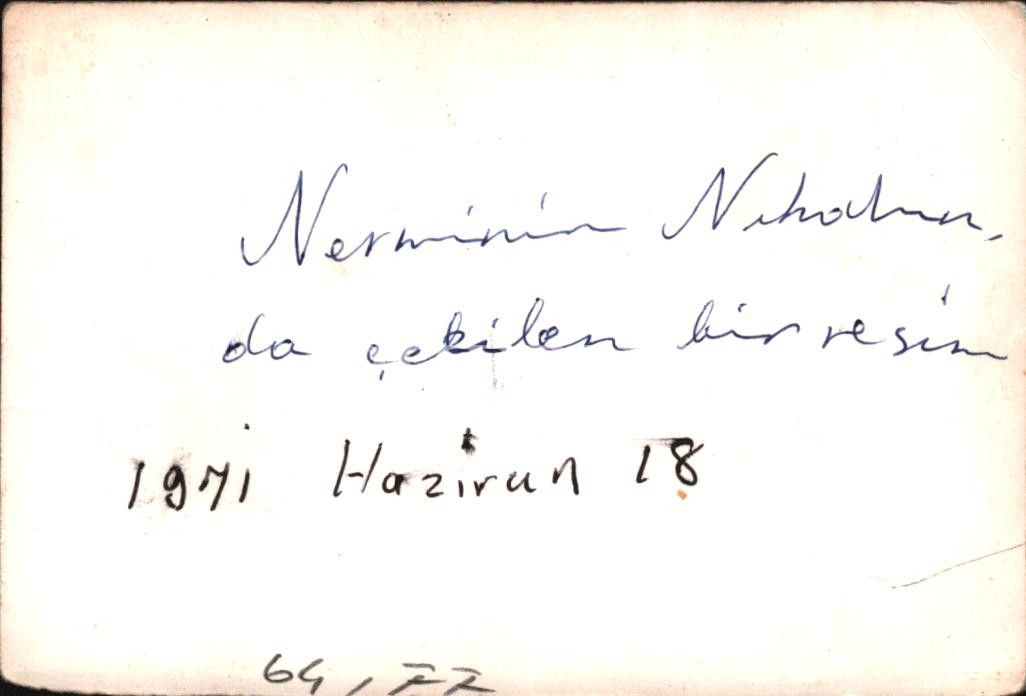 Nerminin Nikahın,
da çekilen bir resim
1971 Haziran 18
64, 77